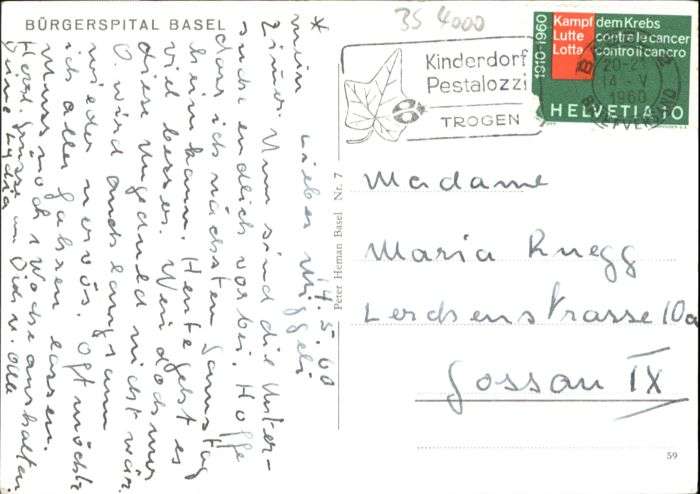 BÜRGERSPITAL BASEL
35 4000
Kinderdorf
Pestalozzi
TROGEN
1910-1960
Kampf dem Krebs
Lutte contre le cancer
Lotta contro il cancro
HELVETIA 10
14. V
1960
14.5.60
* mein lieber Miggeli
Nun sind die Unter-
suche endlich vorbei. Hoffe
dass ich nächsten Samstag
heim kann. Heute geht es
viel besser. Wenn doch nur
diese Ungeduld nicht wär.
O. wird auch langsam
wieder nervös. Oft möchte
ich alles fahren lassen.
Muss noch 1 Woche aushalten.
Herzl. Grüsse an Dich u. alle
Lydia
Peter Heman Basel Nr. 7
Madame
Maria Ruegg
Lerchenstrasse 10a
Gossau IX
59